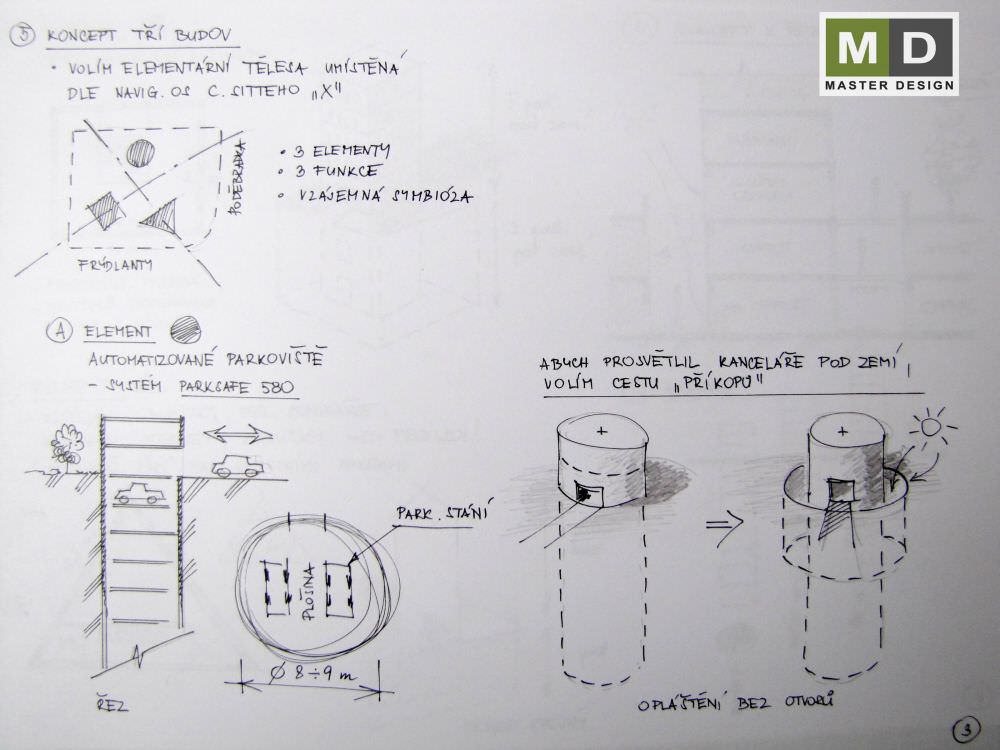 5 KONCEPT TŘÍ BUDOV
• VOLÍM ELEMENTÁRNÍ TĚLESA UMÍSTĚNÁ
DLE NAVIG. OS C. SITTEHO „X"
• 3 ELEMENTY
• 3 FUNKCE
• VZÁJEMNÁ SYMBIÓZA
PODĚBRADKA
FRÝDLANTY
A ELEMENT
AUTOMATIZOVANÉ PARKOVIŠTĚ
- SYSTÉM PARKSAFE 580
PARK. STÁNÍ
PLOŠINA
Ø 8÷9 m
ŘEZ
ABYCH PROSVĚTLIL KANCELÁŘE POD ZEMÍ,
VOLÍM CESTU „PŘÍKOPU"
OPLÁŠTĚNÍ BEZ OTVORŮ
3
MD
MASTER DESIGN